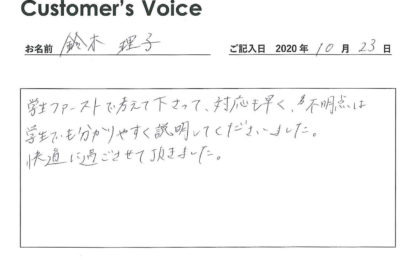 Customer's Voice
お名前 鈴木 理子 ご記入日 2020年 10 月 23 日
学生ファーストで考えて下さって、対応も早く、不明点は
学生でも分かりやすく説明してくださいました。
快適に過ごさせて頂きました。